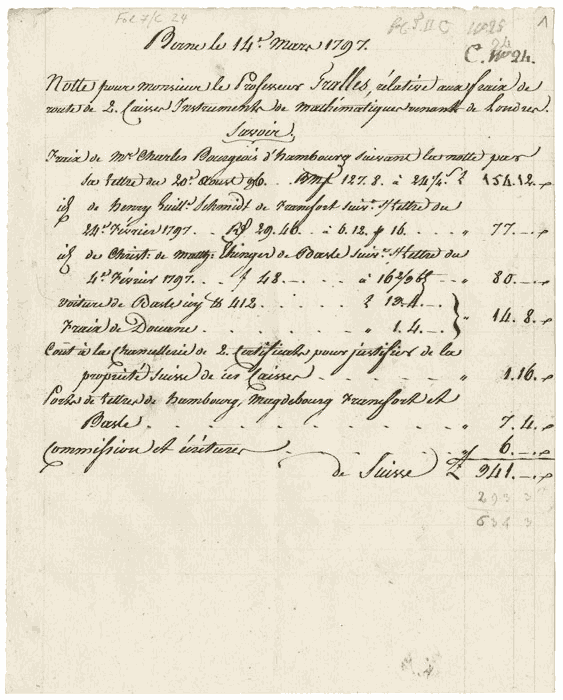 For 7/C 24
N° 25
24
1
Berne le 14.e Mars 1797.
C. N° 24.
Notte pour monsieur le Professeur Tralles, rélative aux fraix de
route de 2. Caisses Instruments de mathématiques venant de Londres.
Savoir
Fraix de Mr. Charles Bourgeois d'hambourg suivant la notte par
sa lettre du 20.e Aoust 96. . . Bmf 127.8. à 24½ 154.12.
id de Henry Guill. Schmidt de Francfort suiv. sa lettre du
24.e Février 1797. . . 29.46. . à 6.12. p 16. . " 77.—.
id de Christ. de Matt. Ehinger de Basle suiv. sa lettre du
4.e Février 1797. . . f 48. . . . à 162/96 . . " 80.—.
voiture de Basle icy 412. . . . 13.4.
Fraix de Douane. . . . . . " 1.4. " 14.8.
Cout à la Chancellerie de 2. Certificats pour justifier de la
proprièté Suisse de ces Caisses . . . . . . " 1.16.
Ports de lettres de hambourg, Magdebourg Francfort et
Basle. . . . . . . . . . " 7.4.
Commission et écritures . . . . . 6.—.
de Suisse 341.—.
293 3
634 3